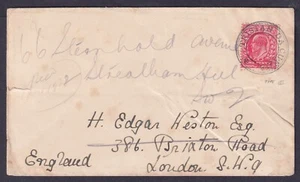 66 Sternhold Avenue
Streatham Hill
SW 2
H. Edgar Weston Esq.
386, Brixton Road
London. S.W.9
England